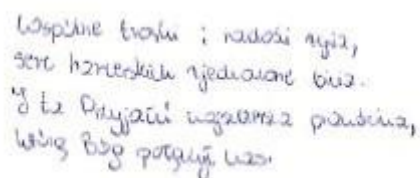 Wspólne troski i radości życia,
serc harcerskich zjednoczone bicia.
I ta Przyjaźń najszersza prawdziwa,
którą Bóg połączył nas.